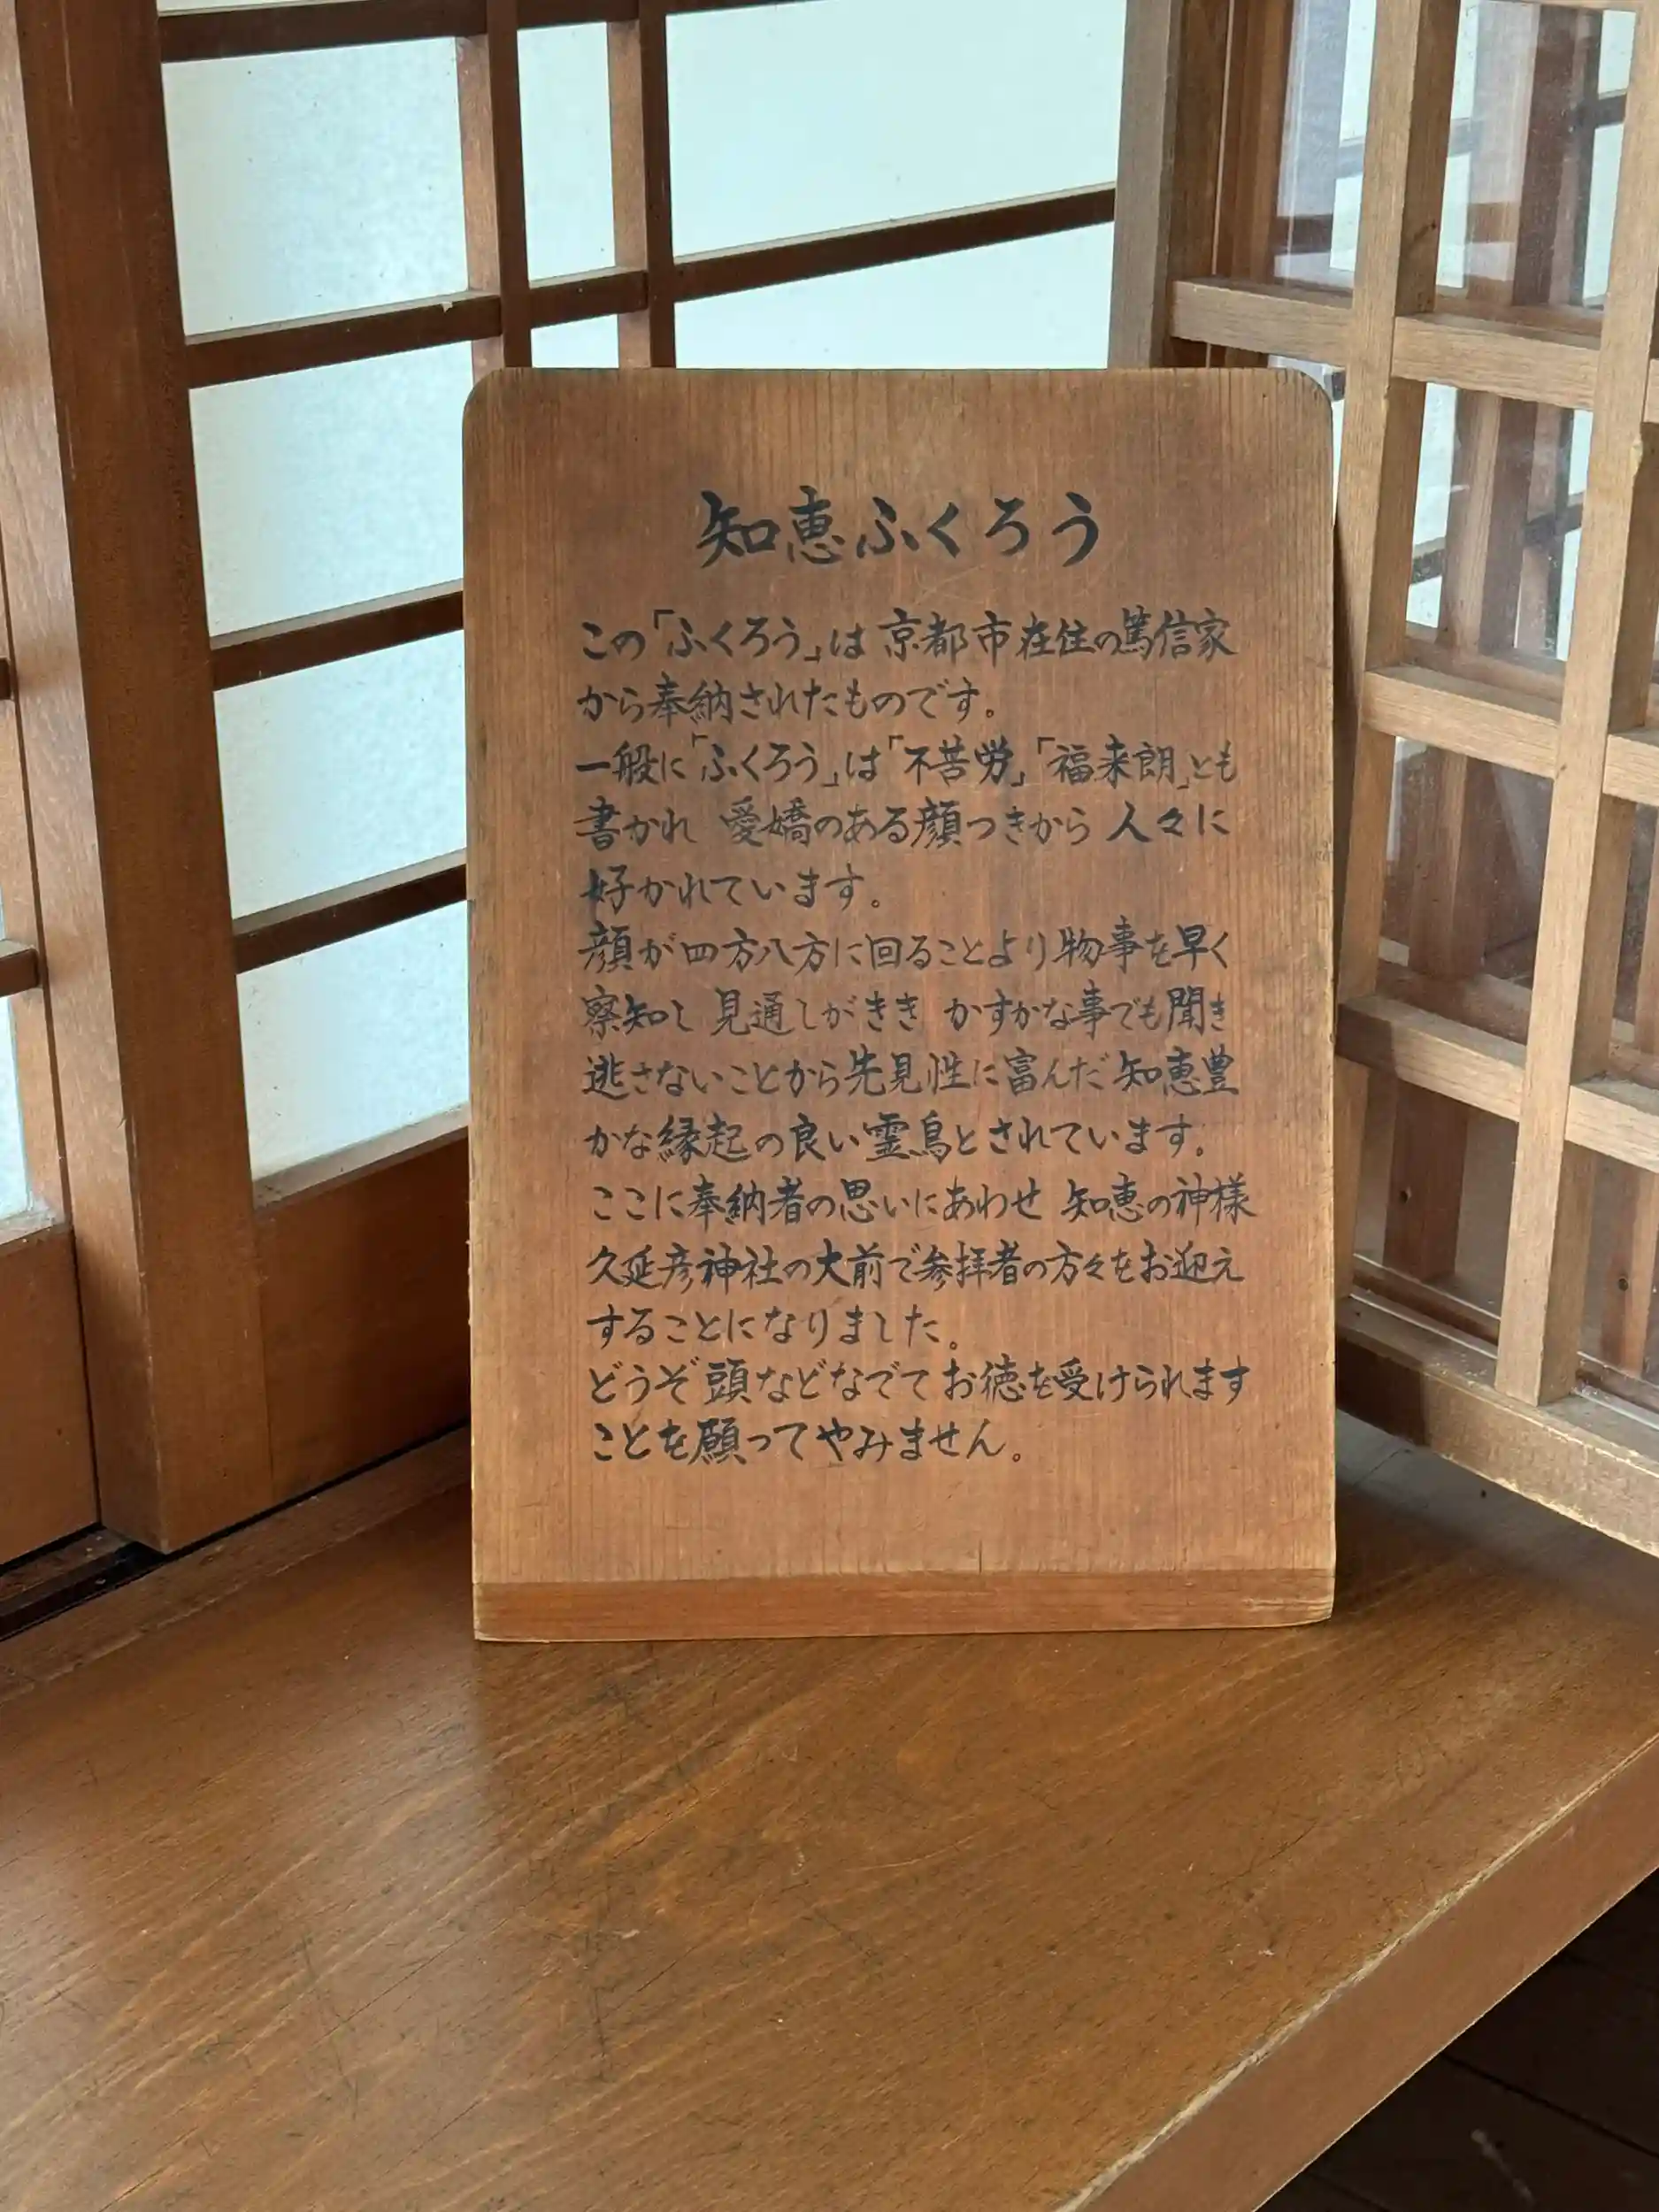 知恵ふくろう
この「ふくろう」は 京都市在住の篤信家
から奉納されたものです。
一般に「ふくろう」は「不苦労」「福来朗」とも
書かれ 愛嬌のある顔つきから 人々に
好かれています。
顔が四方八方に回ることより物事を早く
察知し 見通しがきき かすかな事でも聞き
逃さないことから先見性に富んだ 知恵豊
かな縁起の良い霊鳥とされています。
ここに奉納者の思いにあわせ 知恵の神様
久延彦神社の大前で参拝者の方々をお迎え
することになりました。
どうぞ 頭などなでて お徳を受けられます
ことを願ってやみません。